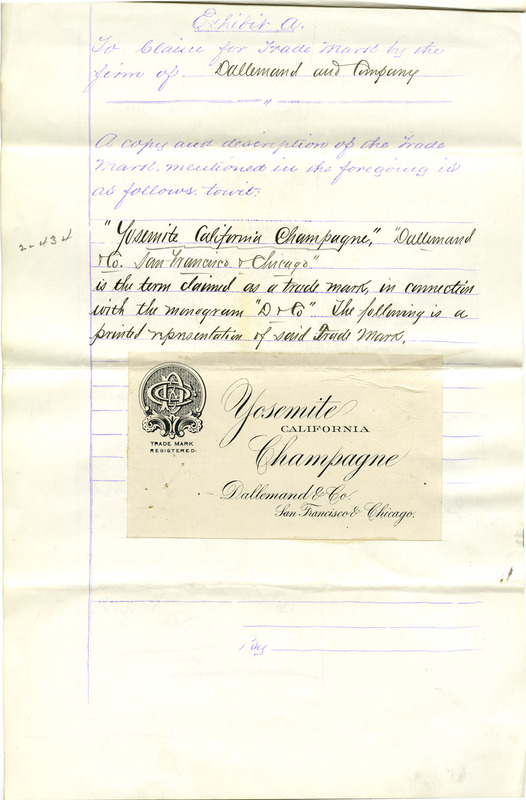 Exhibit A.
To Claim for Trade Mark by the
firm of Dallemand and Company
"
A copy and description of the Trade
Mark mentioned in the foregoing is
as follows towit:
"Yosemite California Champagne," "Dallemand
& Co. San Francisco & Chicago"
2-434
is the term claimed as a trade mark, in connection
with the monogram "D & Co". The following is a
printed representation of said Trade Mark.
TRADE MARK
REGISTERED.
Yosemite
CALIFORNIA
Champagne
Dallemand & Co.
San Francisco & Chicago.
By